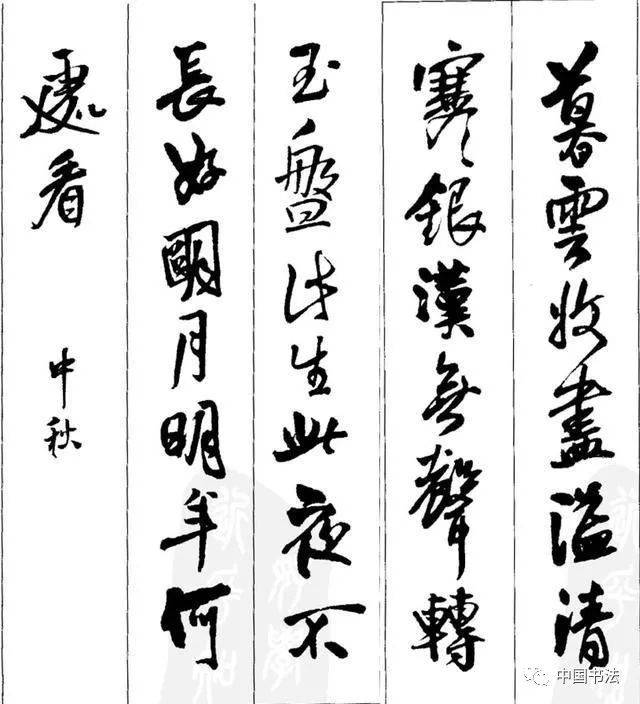 暮雲收盡溢清
寒銀漢無聲轉
玉盤此生此夜不
長好朙月明年何
處看
中秋
中国书法